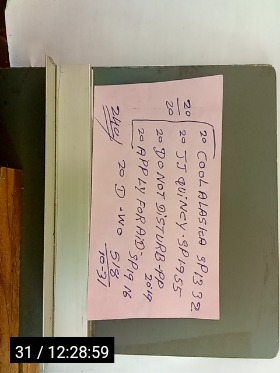 20/20
20 COOL ALASKA SP1332
20 JJ QUINCY-SP1955
20 DO NOT DISTURB-PP 2019
20 APPLY FOR AID-SP1916
2401
20 D-WO 518
10-31
31 / 12:28:59